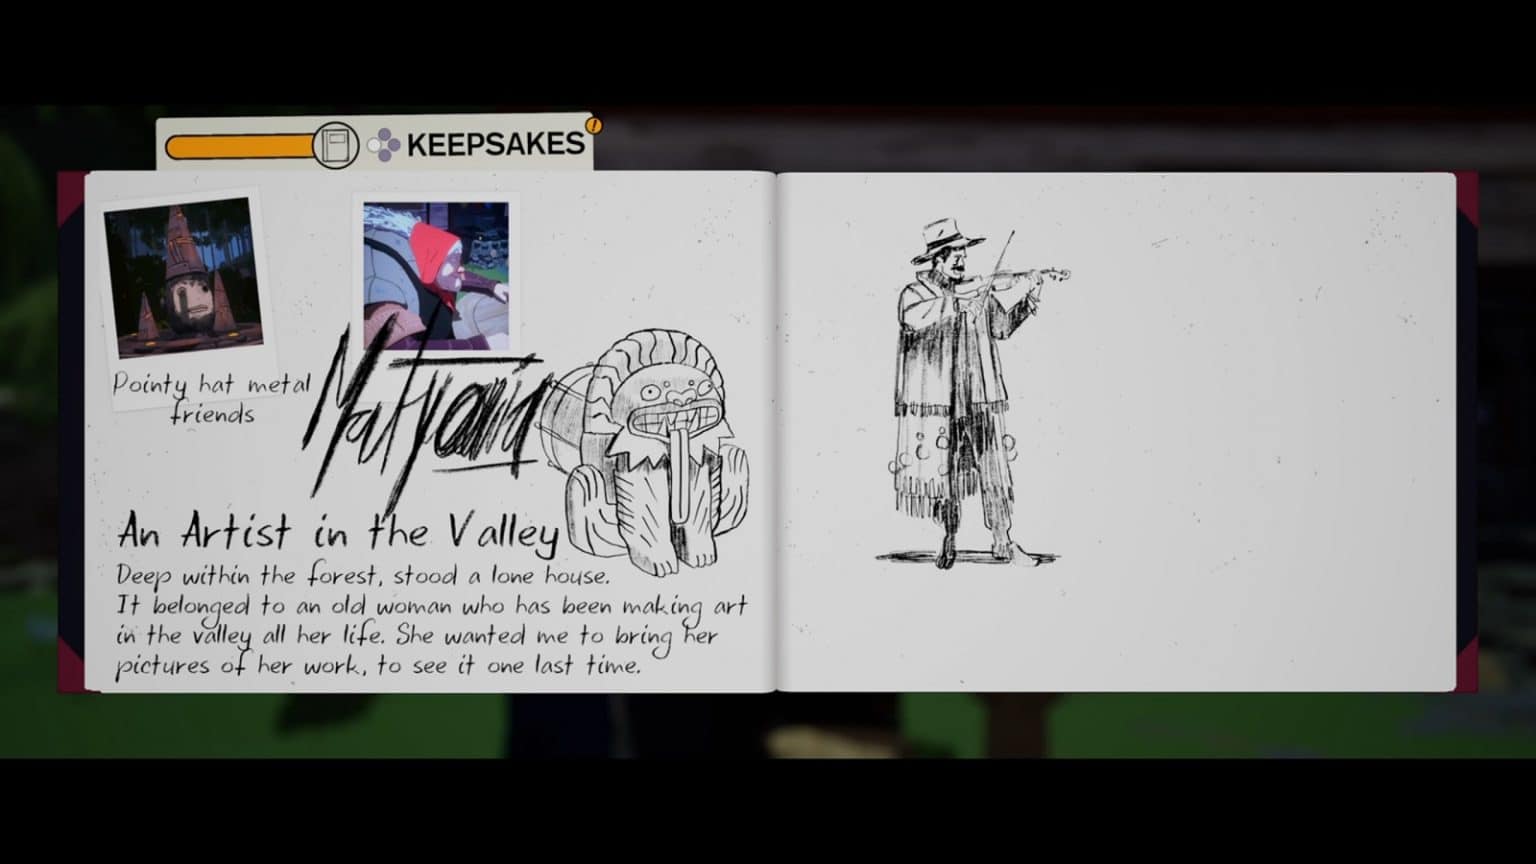 KEEPSAKES
!
Pointy hat metal
friends
An Artist in the Valley
Deep within the forest, stood a lone house.
It belonged to an old woman who has been making art
in the valley all her life. She wanted me to bring her
pictures of her work, to see it one last time.